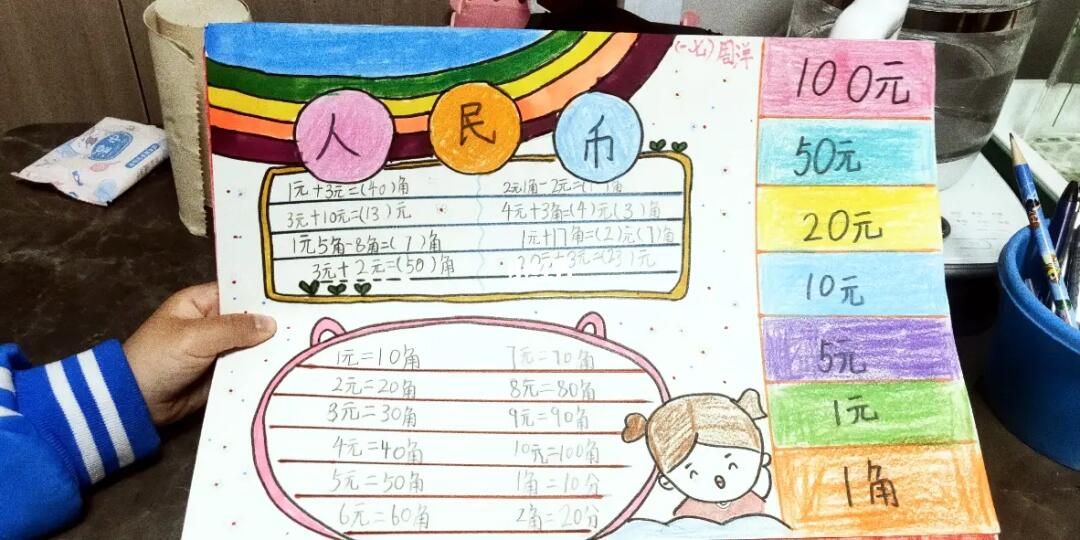 (一七)周洋
人民币
1元+3元=(40)角
2元1角-2元=(1)角
3元+10元=(13)元
4元+3角=(4)元(3)角
1元5角-8角=(7)角
1元+17角=(2)元(7)角
3元+2元=(50)角
20元+3元=(23)元
1元=10角
7元=70角
2元=20角
8元=80角
3元=30角
9元=90角
4元=40角
10元=100角
5元=50角
1角=10分
6元=60角
2角=20分
100元
50元
20元
10元
5元
1元
1角